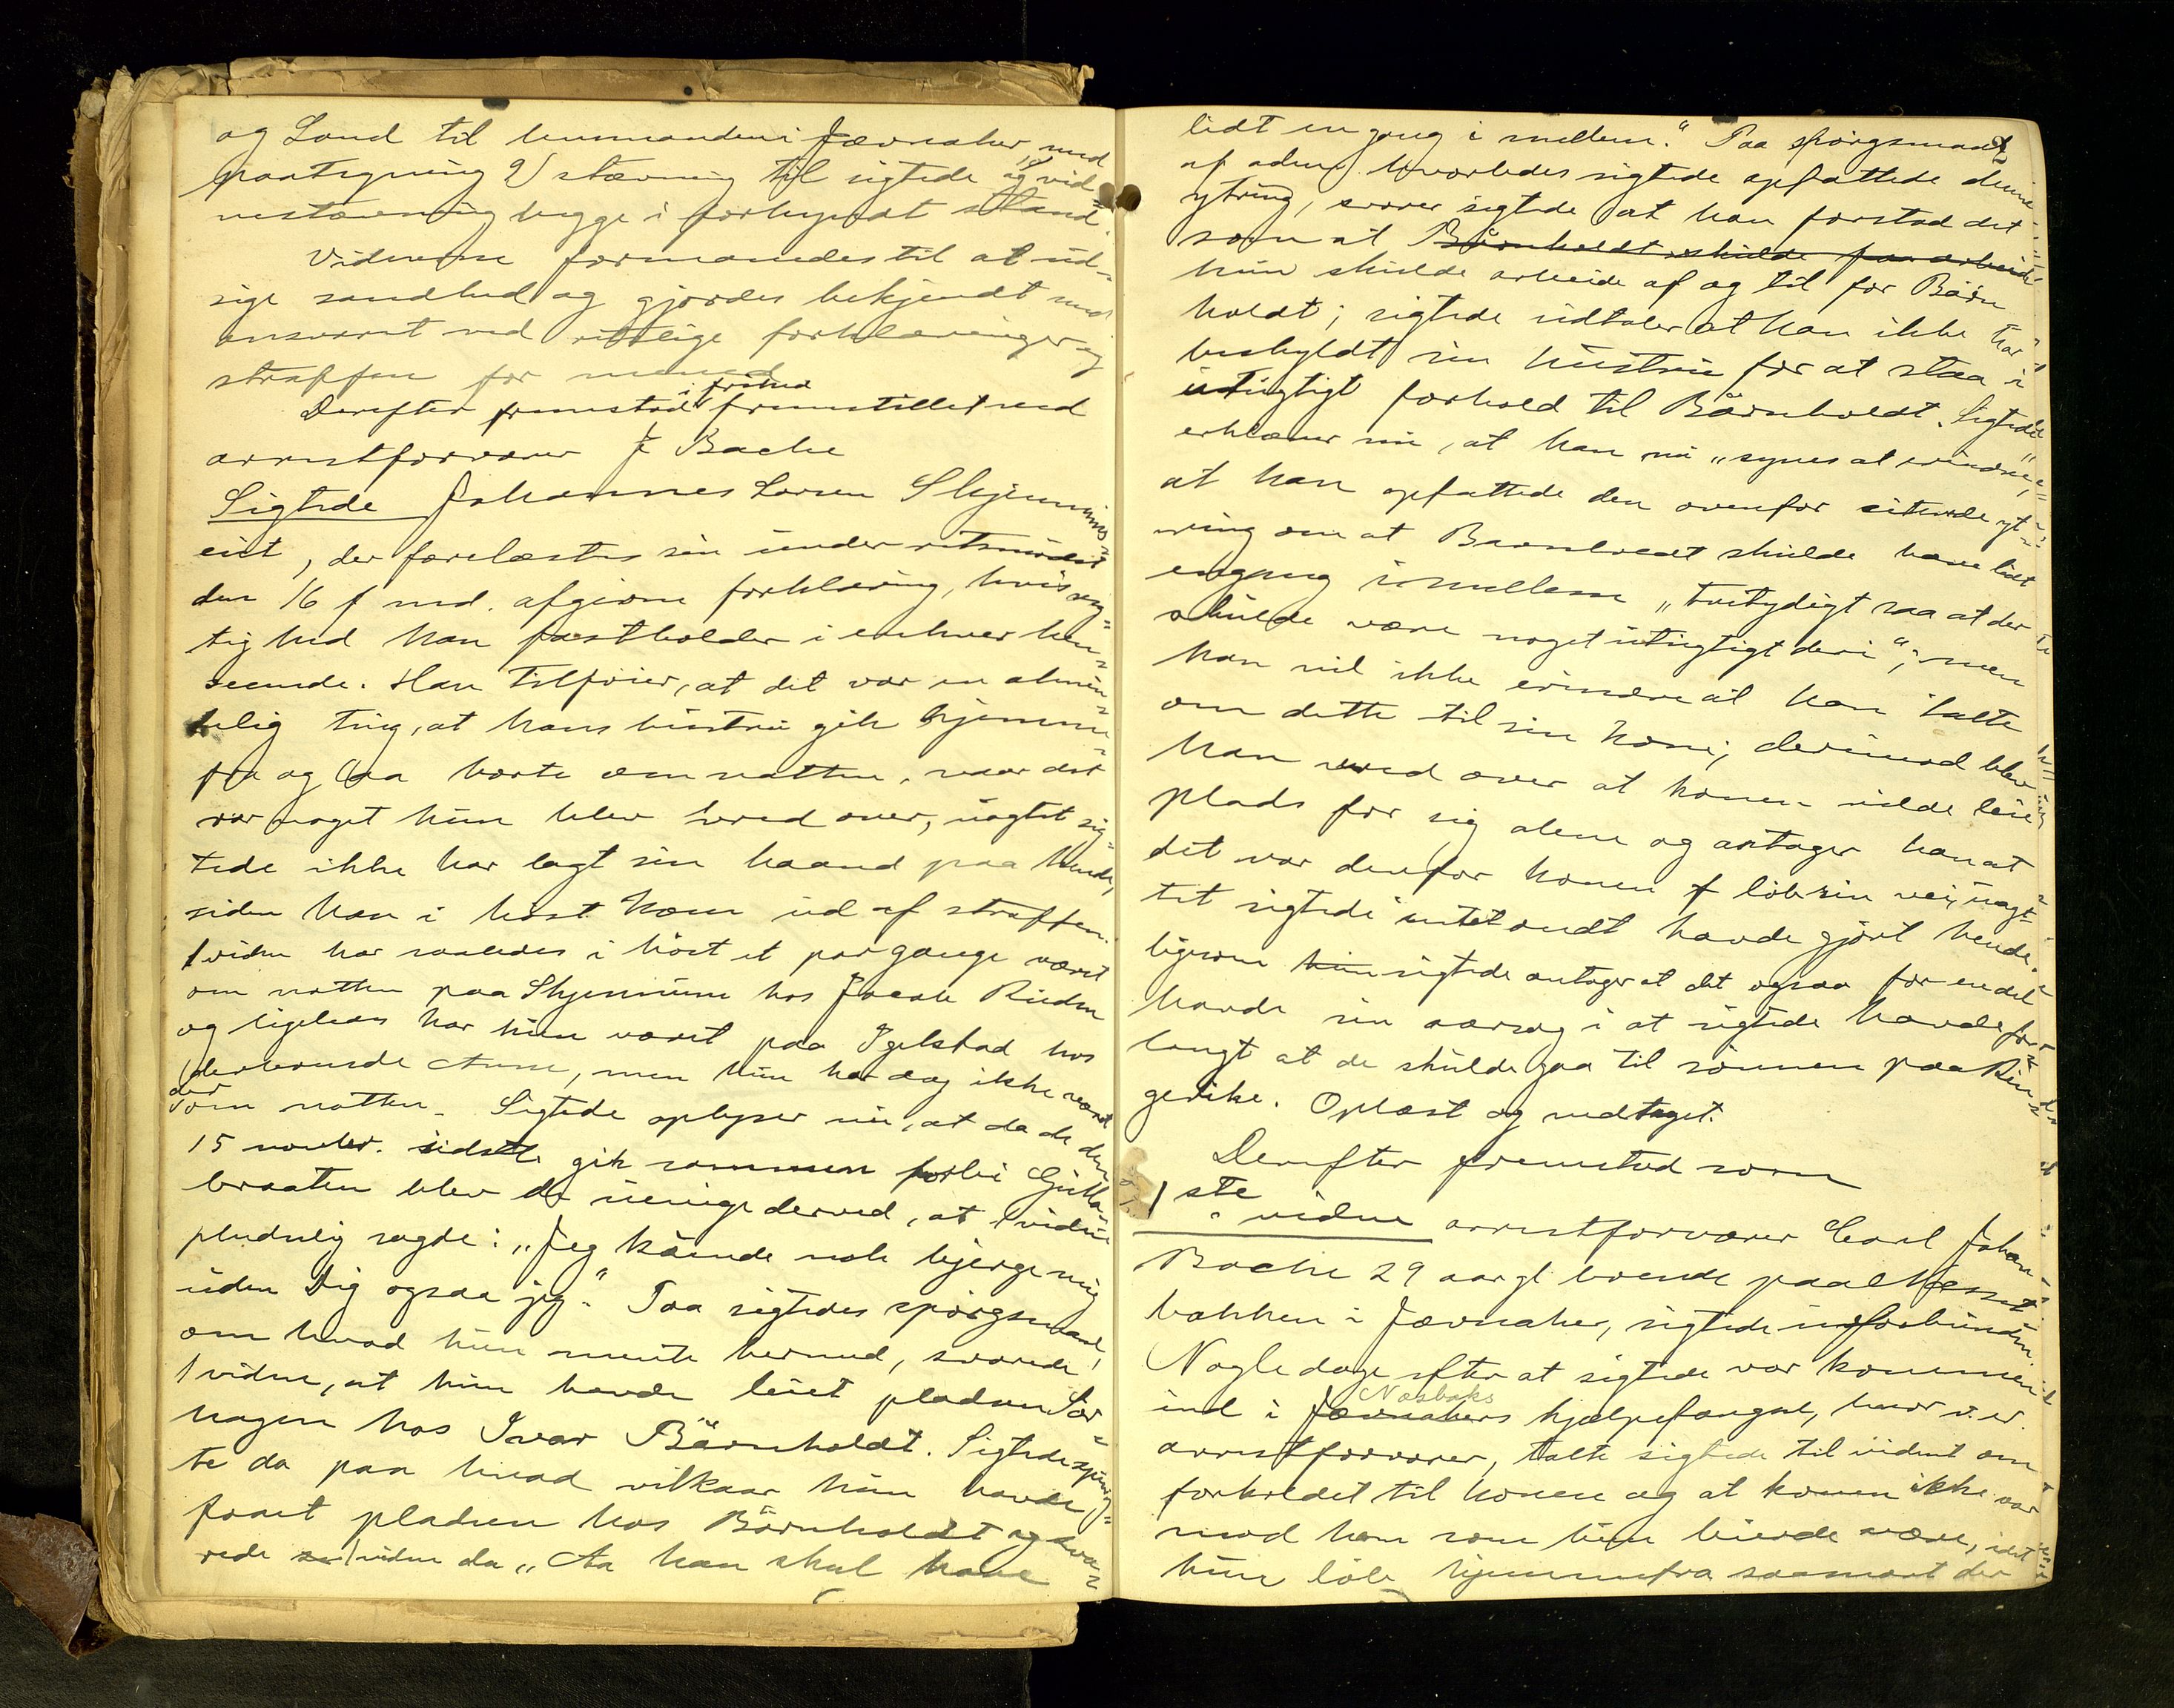 og Land til lensmanden i Jævnaker med
paategning 2) stævning til sigtede og vid-
nestævning begge i forkyndt stand.
Vidnerne formanedes til at ud-
sige sandhed og gjordes bekjendt med
ansvaret ved urigtige forklaringer og
straffen for mened
Derefter fremstod i frihed fremstillet ved
arrestforvarer J Bache
Sigtede Johannes Larsen Skjennum-
eiet, der forelæstes sin under retsmødet
den 16 f md. afgivne forklaring, hvis rig-
tighed han fastholder i enhver hen-
seende. Han tilføier, at det var en almin-
delig ting, at hans hustru gik hjemme-
fra og laa borte om natten, naar det
var noget hun blev vred over, uagtet sig-
tede ikke har lagt sin haand paa hende,
siden han i høst kom ud af straffen.
1 vidne har saaledes i høst et par gange været
om natten paa Skjennum hos Jacob Ruden
og ligeledes har hun været paa Igelstad hos
derboende Anne, men hun har dog ikke været
der om natten. Sigtede oplyser nu, at da de den
15 novbr. sidstl. gik sammen forbi Gulla-
braaten blev de uenige derved, at 1 vidne
pludselig sagde: „Jeg kunde nok bjerge mig
uden Dig ogsaa jeg." Paa sigtedes spørgsmaal,
om hvad hun mente hermed, svarede
1 vidne, at hun havde leiet pladsen Sør-
hagen hos Ivar Bårnholdt. Sigtede spurg-
te da paa hvad vilkaar hun havde
faaet pladsen hos Bårnholdt og sva-
rede 1 vidne da „Aa han skal have
lidt en gang i mellem." Paa spørgsmaal
af adm. hvorledes sigtede opfattede denne
ytring, svarer sigtede at han forstod det
som at Bårnholdt skulde faa arbeide
hun skulde arbeide af og til for Bårn
holdt; sigtede udtaler at han ikke har
beskyldt sin hustru for at staa i
utugtigt forhold til Bårnholdt. Sigtede
erklærer nu, at han nu „synes at erindre",
at han opfattede den ovenfor citerede yt-
ring om at Barnholdt skulde have lidt
engang imellem „tvetydigt saa at der
skulde være noget utugtigt deri", men
han vil ikke erindre at han talte
om dette til sin kone; derimod blev
han vred over at konen vilde leie
plads for sig alene og antager han at
det var derfor konen løb sin vei, uagt-
tet sigtede intet ondt havde gjort hende.
ligesom hun sigtede antager at det ogsaa for en del
havde sin aarsag i at sigtede havde for-
langt at de skulde gaa til sønnen paa Rin-
gerike. Oplæst og vedtaget.
Derefter fremstod som
1ste vidne arrestforvarer Carl Johan
Bache 29 aar gl boende paa
bakken i Jævnaker, sigtede uforbunden.
Nogle dage efter at sigtede var kommen
ind i Jævnakers Nasbaks hjælpefængsel, hvor v. er
arrestforvarer, talte sigtede til vidnet om
forholdet til konen og at konen ikke var
mod ham som hun burde være, idet
hun løb hjemmefra saasnart der